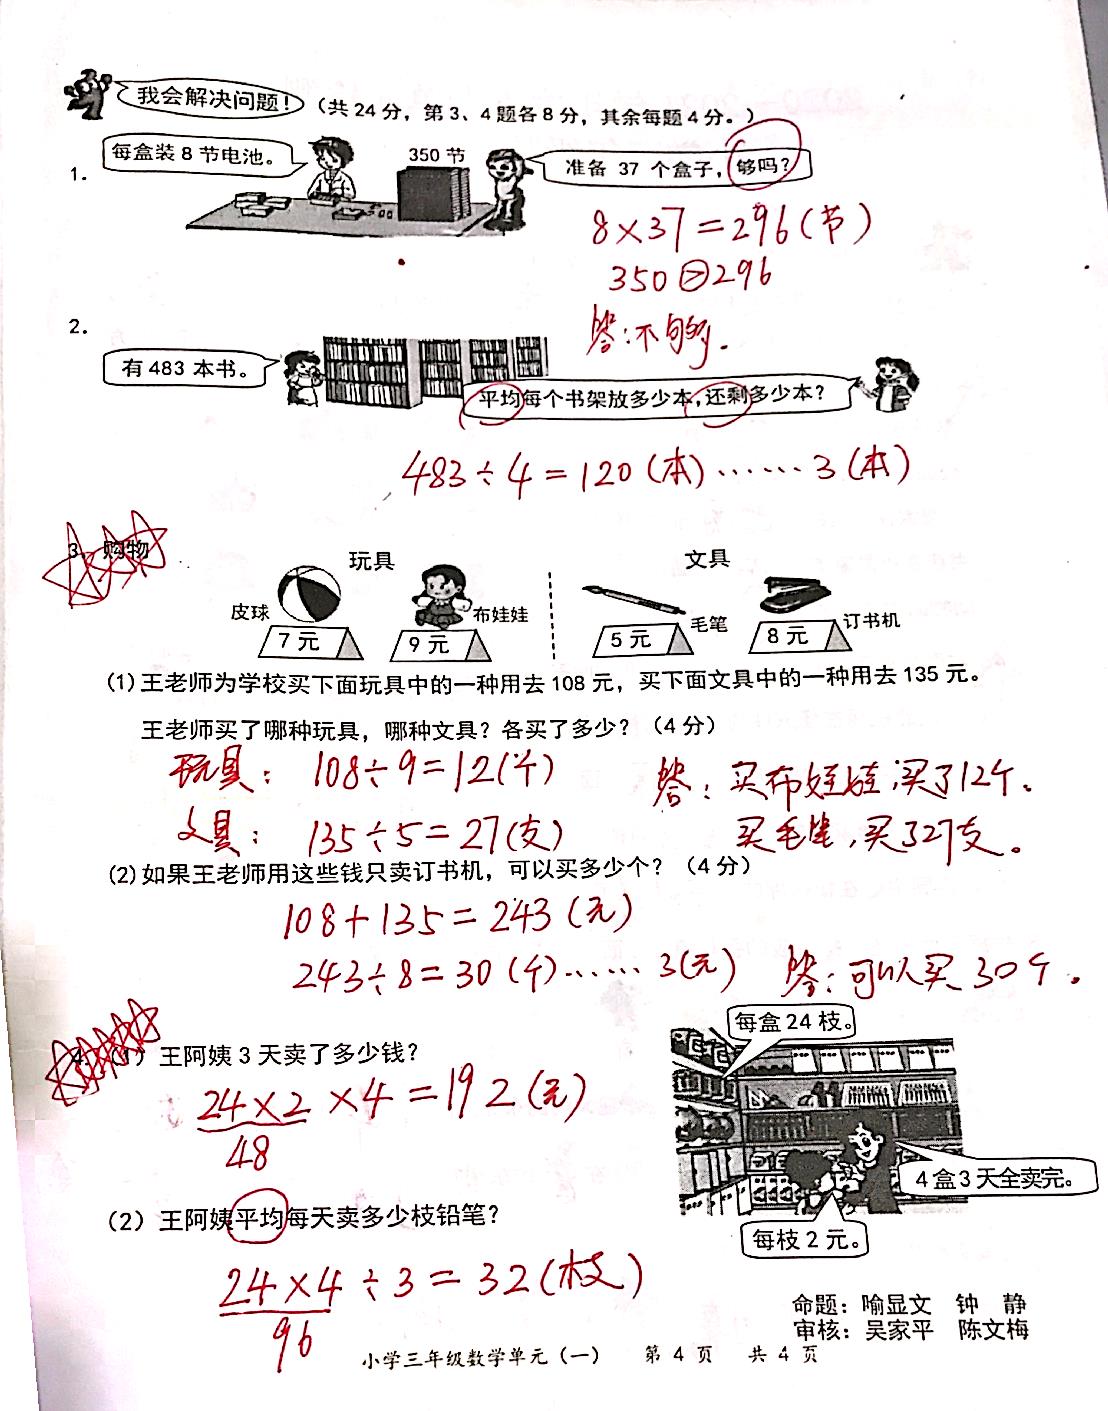 我会解决问题！（共24分，第3、4题各8分，其余每题4分。）
1.
每盒装8节电池。
350节
准备 37 个盒子，够吗？
8×37=296（节）
350>296
答：不够.
2.
有483本书。
平均每个书架放多少本，还剩多少本？
483÷4=120（本）……3（本）
3、购物
玩具
文具
皮球
7元
布娃娃
9元
5元
毛笔
8元
订书机
（1）王老师为学校买下面玩具中的一种用去108元，买下面文具中的一种用去135元。
王老师买了哪种玩具，哪种文具？各买了多少？（4分）
玩具： 108÷9=12（个）
答：买布娃娃,买了12个.
文具： 135÷5=27（支）
买毛笔,买了27支。
（2）如果王老师用这些钱只卖订书机，可以买多少个？（4分）
108+135=243（元）
243÷8=30（个）……3（元）
答：可以买30个.
4.（1）王阿姨3天卖了多少钱？
24×2×4=192（元）
48
每盒24枝。
4盒3天全卖完。
每枝2元。
（2）王阿姨平均每天卖多少枝铅笔？
24×4÷3=32（枝）
96
命题：喻显文 钟 静
审核：吴家平 陈文梅
小学三年级数学单元（一） 第 4 页 共 4 页